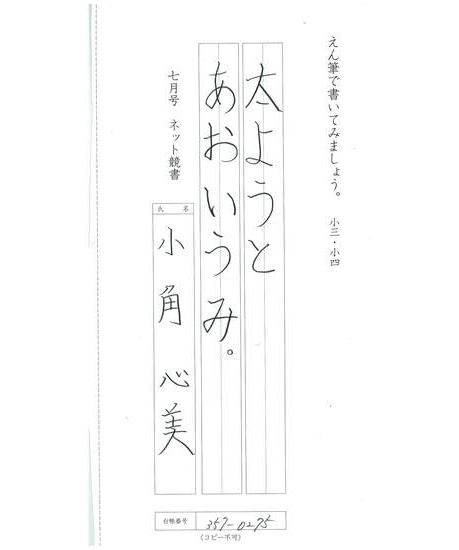 えん筆で書いてみましょう。 小三・小四
太ようと
あおいうみ。
七月号 ネット競書
氏名
小角 心美
台帳番号
357-0275
(コピー不可)